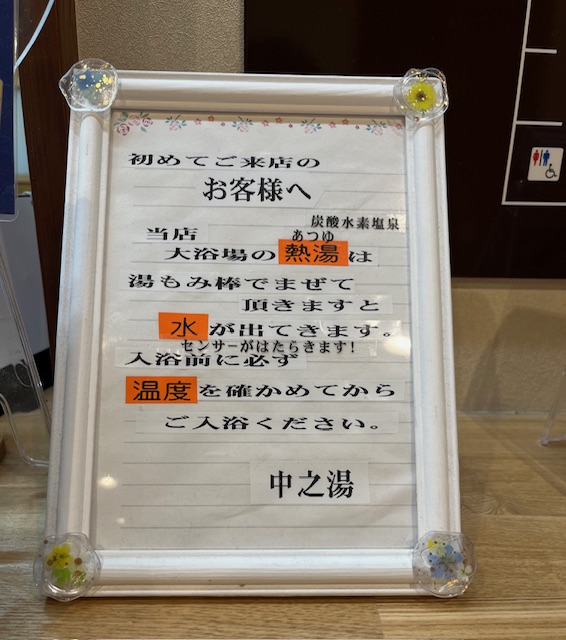 初めてご来店の
お客様へ
炭酸水素塩泉
当店
あつゆ
大浴場の熱湯は
湯もみ棒でまぜて
頂きますと
水が出てきます。
センサーがはたらきます!
入浴前に必ず
温度を確かめてから
ご入浴ください。
中之湯